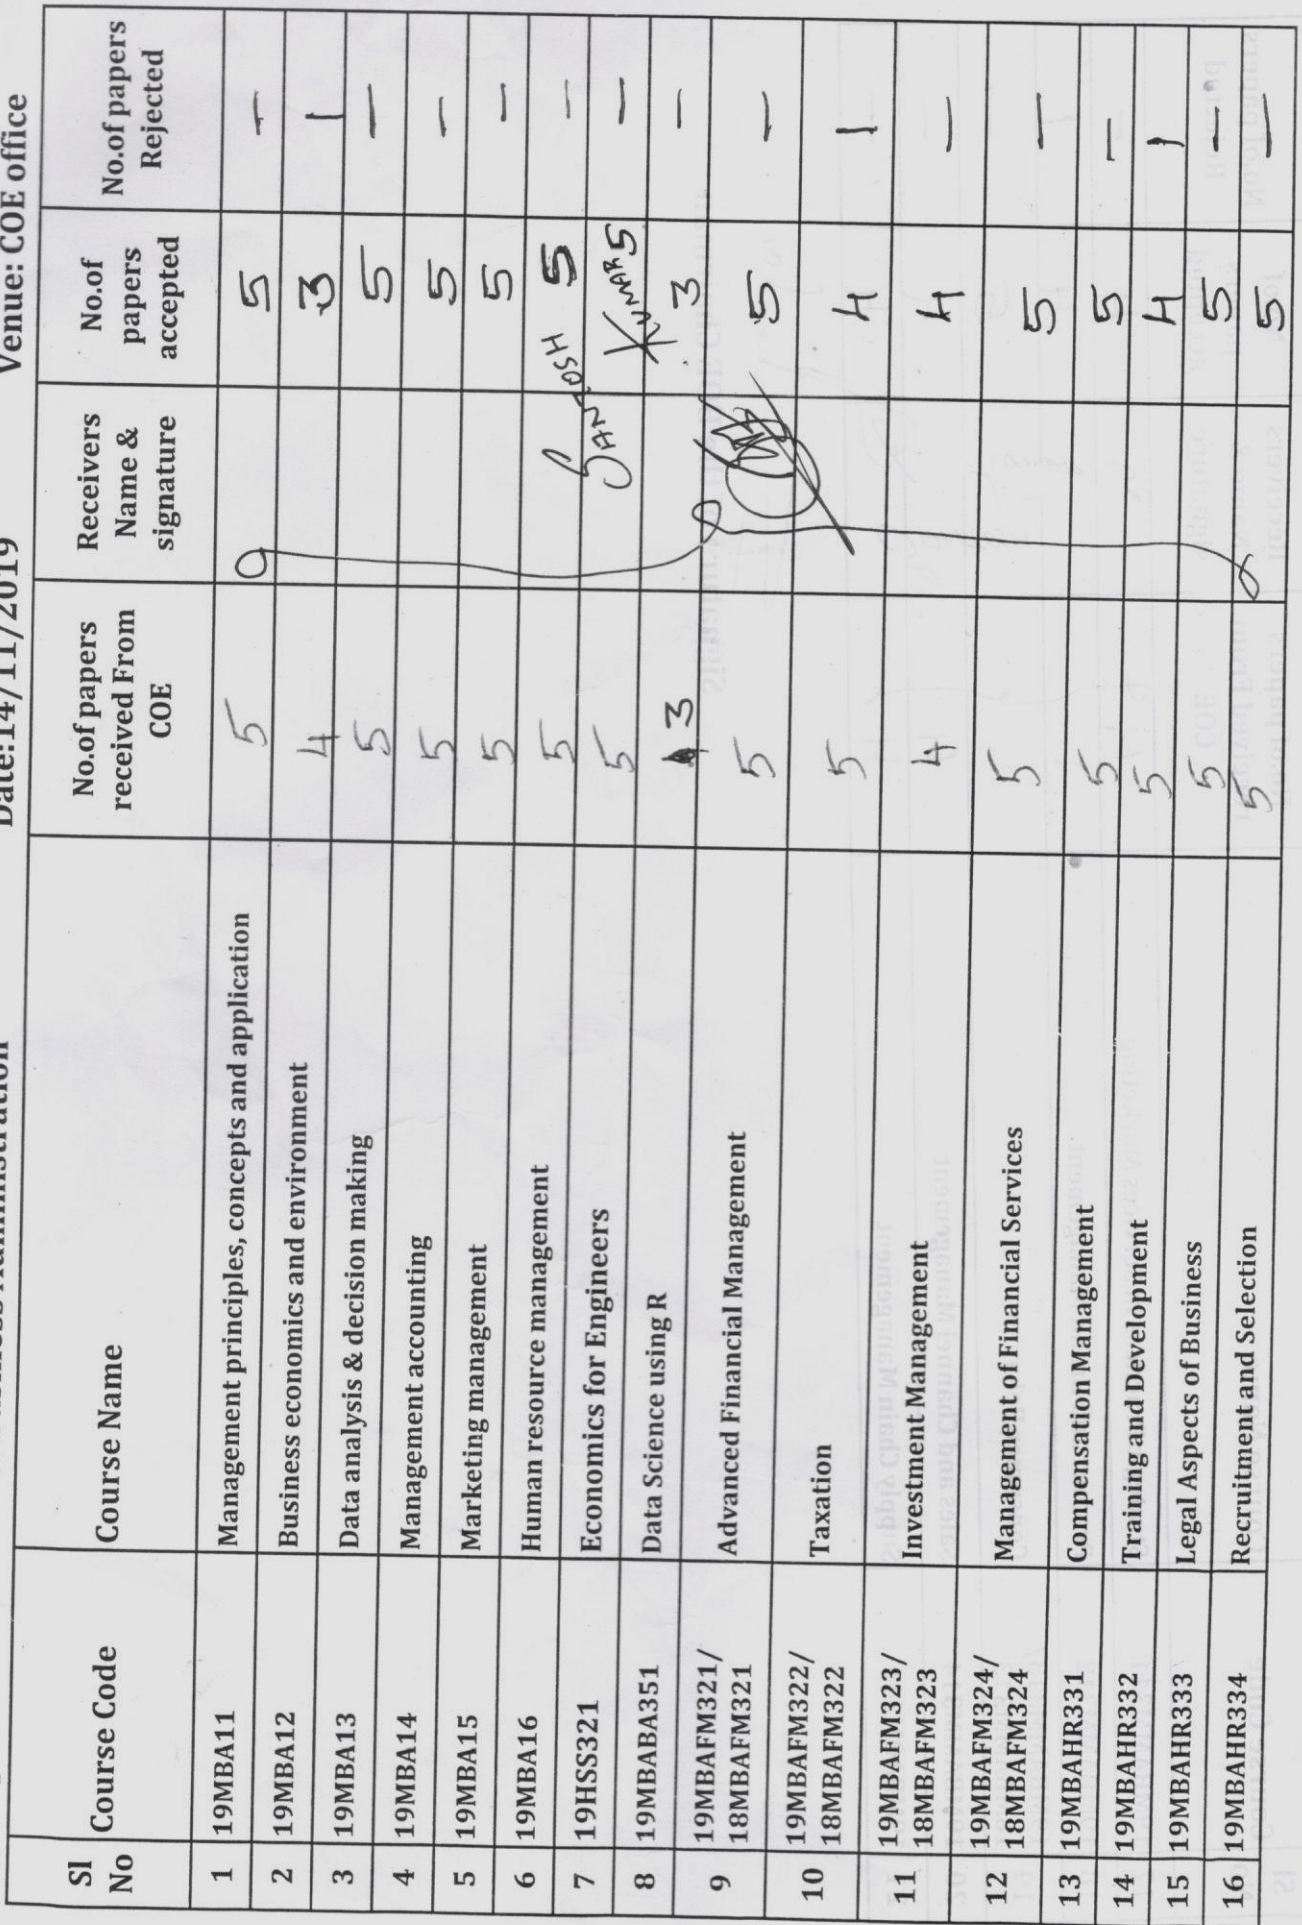 Date:14/11/2019 Venue: COE office
Sl No Course Code Course Name No.of papers received From COE Receivers Name & signature No.of papers accepted No.of papers Rejected
1 19MBA11 Management principles, concepts and application 5 5 –
2 19MBA12 Business economics and environment 4 3 1
3 19MBA13 Data analysis & decision making 5 5 –
4 19MBA14 Management accounting 5 5 –
5 19MBA15 Marketing management 5 5 –
6 19MBA16 Human resource management 5 5 –
7 19HSS321 Economics for Engineers 5 SANTOSH KUMAR 5 –
8 19MBABA351 Data Science using R 3 3 –
9 19MBAFM321/ 18MBAFM321 Advanced Financial Management 5 5 –
10 19MBAFM322/ 18MBAFM322 Taxation 5 4 1
11 19MBAFM323/ 18MBAFM323 Investment Management 4 4 –
12 19MBAFM324/ 18MBAFM324 Management of Financial Services 5 5 –
13 19MBAHR331 Compensation Management 5 5 –
14 19MBAHR332 Training and Development 5 4 1
15 19MBAHR333 Legal Aspects of Business 5 5 –
16 19MBAHR334 Recruitment and Selection 5 5 –